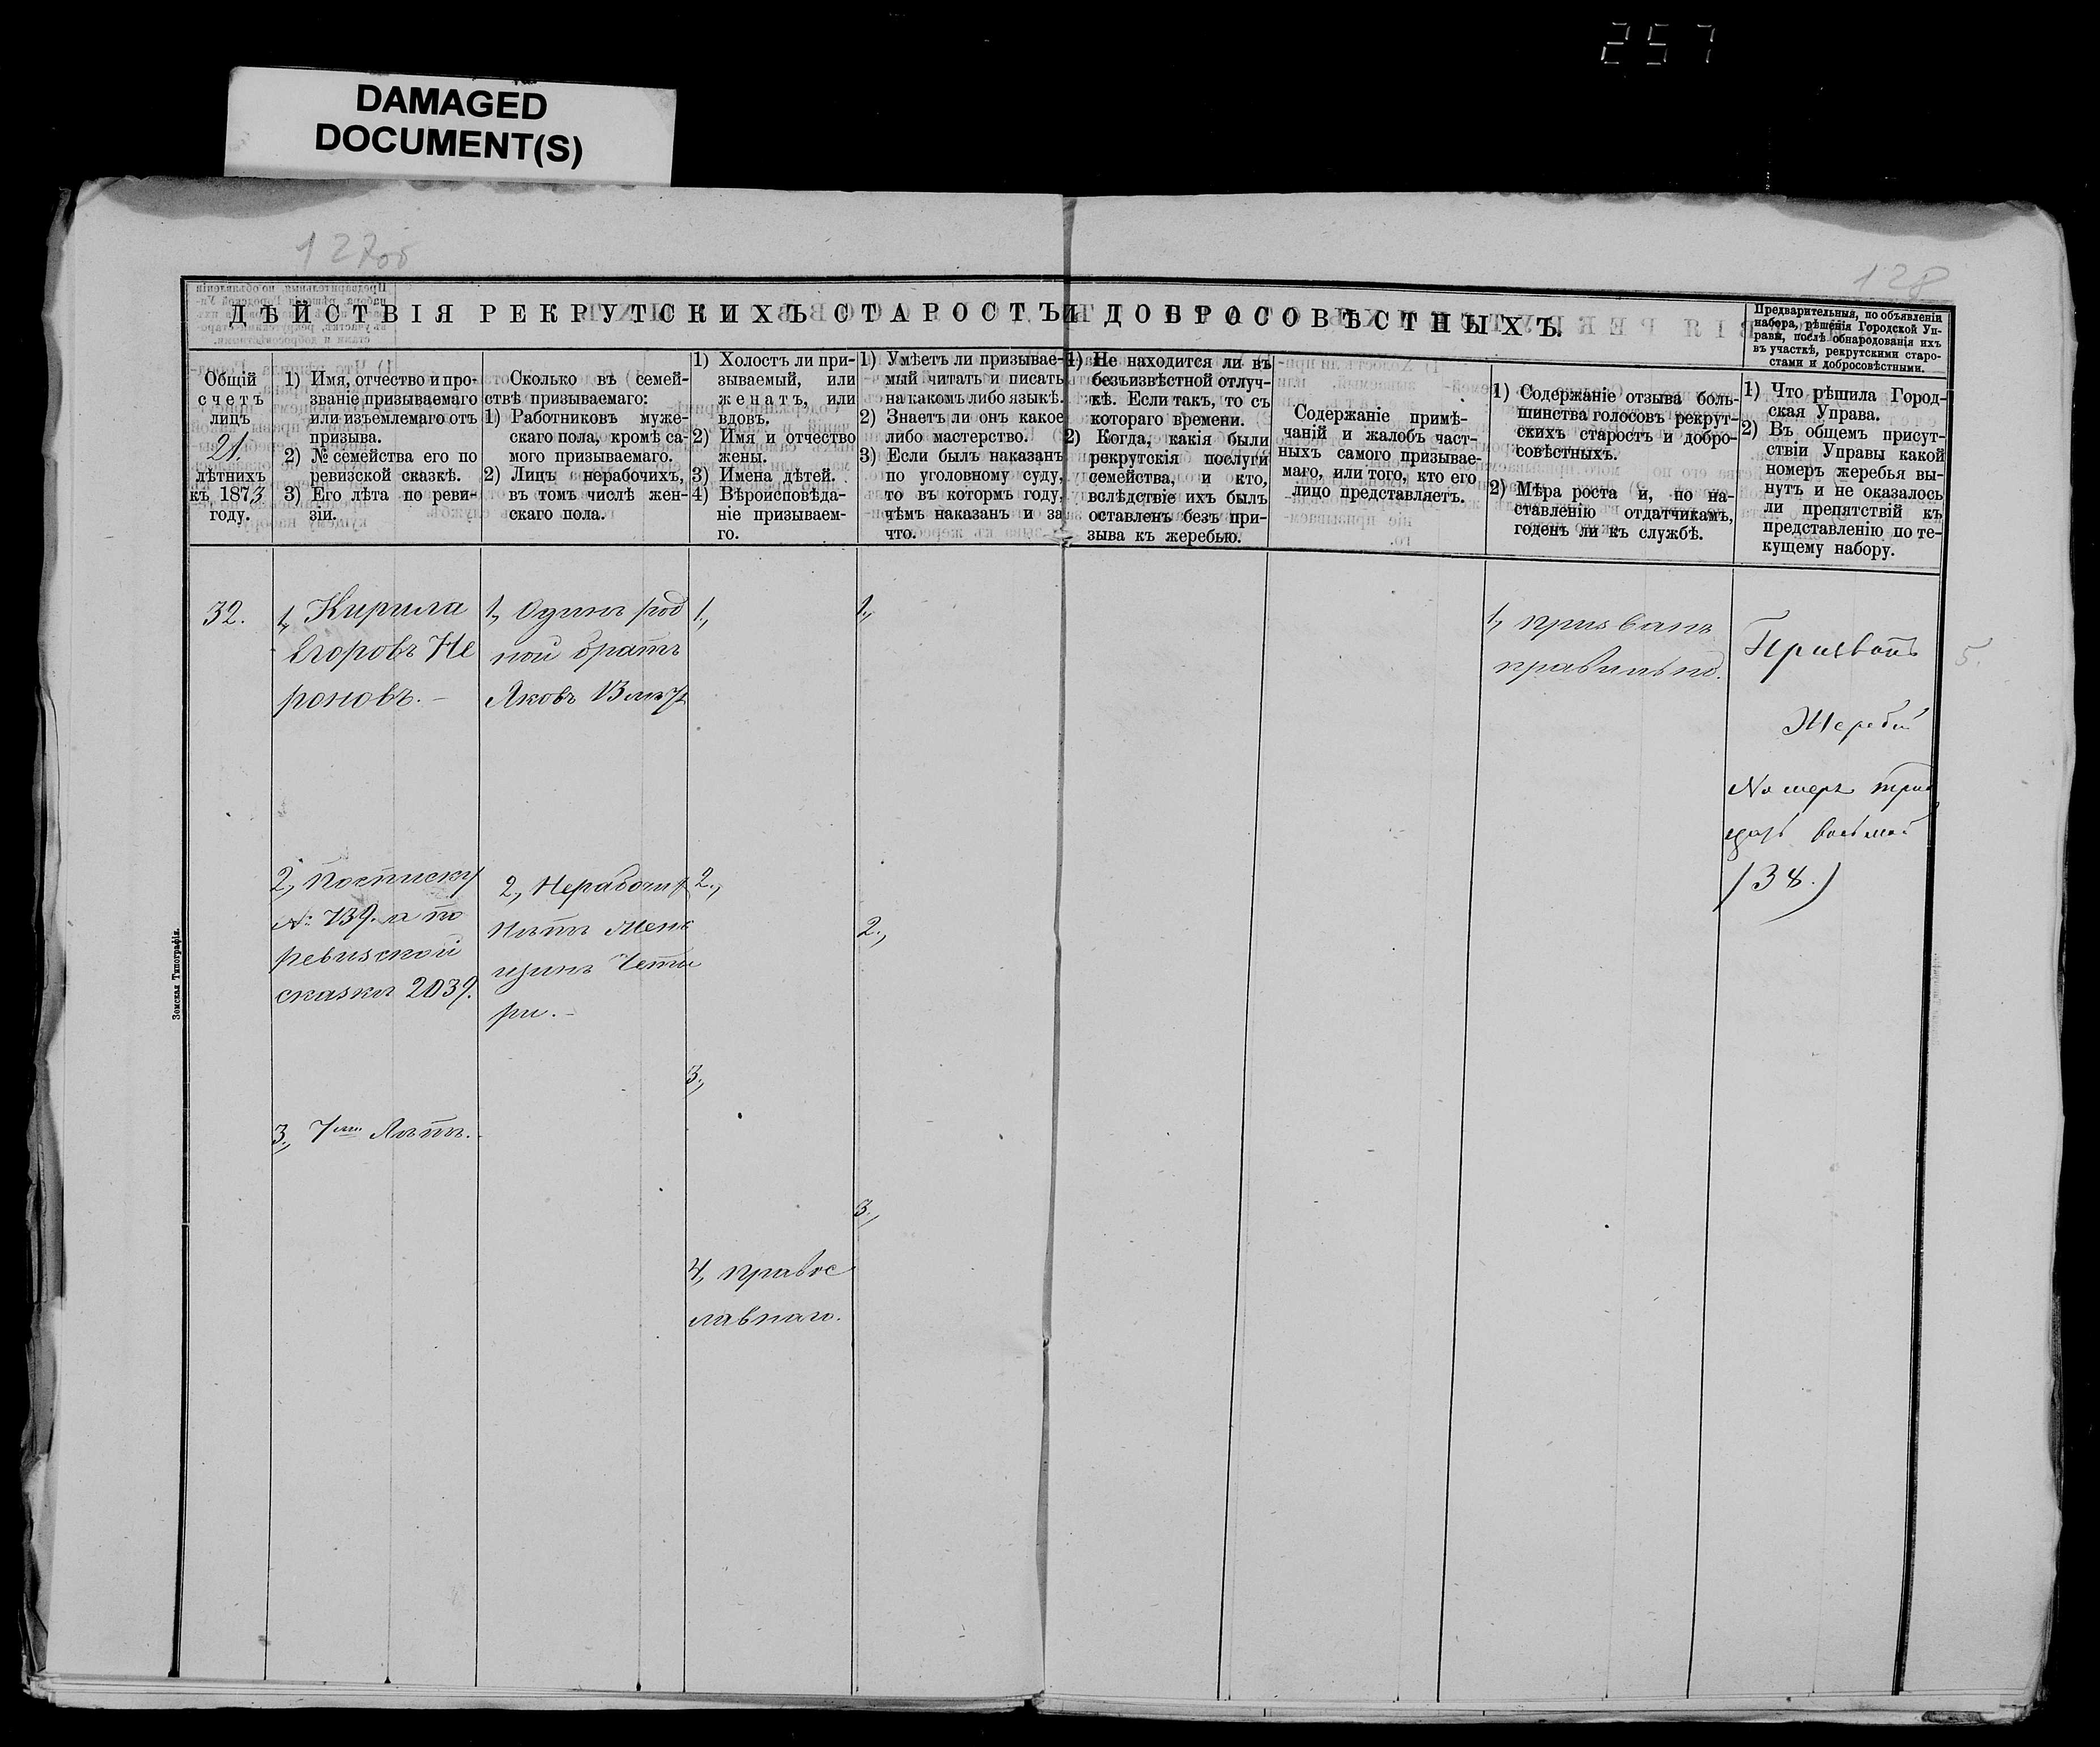 257
DAMAGED
DOCUMENT(S)
127об
128
ДѢЙСТВІЯ РЕКРУТСКИХЪ СТАРОСТЪ И ДОБРОСОВѢСТНЫХЪ.
Предварительныя, по объявленіи
набора, рѣшенія Городской Уп-
равы, послѣ обнародованія ихъ
въ участкѣ, рекрутскими старо-
стами и добросовѣстными.
Общій
счетъ
лицъ
21.
лѣтнихъ
къ 1873
году.
1) Имя, отчество и про-
званіе призываемаго
или изъемлемаго отъ
призыва.
2) № семейства его по
ревизской сказкѣ.
3) Его лѣта по реви-
зіи.
Сколько въ семей-
ствѣ призываемаго:
1) Работниковъ муже-
скаго пола, кромѣ са-
мого призываемаго.
2) Лицъ нерабочихъ,
въ томъ числѣ жен-
скаго пола.
1) Холостъ ли при-
зываемый, или
женатъ, или
вдовъ.
2) Имя и отчество
жены.
3) Имена дѣтей.
4) Вѣроисповѣда-
ніе призываем-
го.
1) Умѣетъ ли призывае-
мый читать и писать
на какомъ либо языкѣ.
2) Знаетъ ли онъ какое
либо мастерство.
3) Если былъ наказанъ
по уголовному суду,
то въ котормъ году,
чѣмъ наказанъ и за
что.
1) Не находится ли въ
безъизвѣстной отлуч-
кѣ. Если такъ, то съ
котораго времени.
2) Когда, какія были
рекрутскія послуги
семейства, и кто,
вслѣдствіе ихъ былъ
оставленъ безъ при-
зыва къ жеребью.
Содержаніе примѣ-
чаній и жалобъ част-
ныхъ самого призывае-
маго, или того, кто его
лицо представляетъ.
1) Содержаніе отзыва боль-
шинства голосовъ рекрут-
скихъ старостъ и добро-
совѣстныхъ.
2) Мѣра роста и, по на-
ставленію отдатчикамъ,
годенъ ли къ службѣ.
1) Что рѣшила Город-
ская Управа.
2) Въ общемъ присут-
ствіи Управы какой
номеръ жеребья вы-
нутъ и не оказалось
ли препятствій къ
представленію по те-
кущему набору.
32.
1, Кирила
Егоровъ Не
роновъ. –
2, По списку
№ 739. а по
ревизской
сказки 2039.
3, 7ми Лѣтъ.
1, Одинъ род
ной братъ
Яковъ 13 лѣтъ
2, Нерабочихъ
Нѣтъ Жен
щинъ Четы
ри. –
1.,
2.,
3.,
4, право
славнаго.
1.,
2.,
3.,
1, призванъ
правильно.
Призванъ
Жеребій
Номеръ трид
цать восьмой
/38./
5.
Земская Типографія.